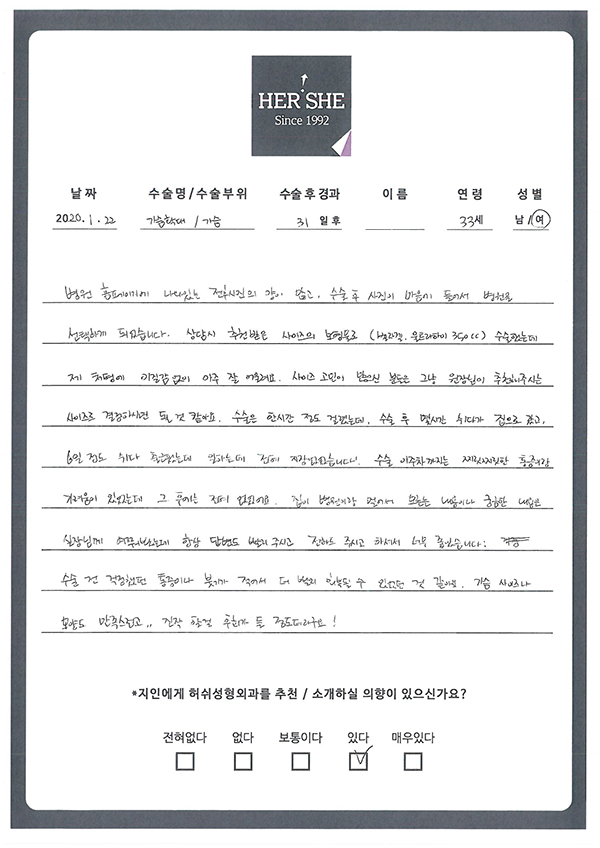 HER SHE
Since 1992
날 짜 수술명/수술부위 수술 후 경과 이 름 연 령 성 별
2020.1.22 가슴확대 / 가슴 31 일 후 33세 남/여
병원 홈페이지에 나와있는 전후사진의 양이 많고, 수술 후 사진이 마음에 들어서 병원을
선택하게 되었습니다. 상담시 추천받은 사이즈의 보형물로 (벨라젤, 울트라하이 350cc) 수술했는데
제 체형에 이질감 없이 아주 잘 어울려요. 사이즈 고민이 많으신 분들은 그냥 원장님이 추천해주시는
사이즈로 결정하시면 될 것 같아요. 수술은 한시간 정도 걸렸는데, 수술 후 몇시간 쉬다가 집으로 갔고,
6일 정도 쉬다 출근했는데 일하는데 전혀 지장없었습니다. 수술 이주차까지는 찌릿찌릿한 통증이랑
가려움이 있었는데 그 후에는 전혀 없었어요. 집이 병원이랑 멀어서 모르는 내용이나 궁금한 내용은
실장님께 여쭤봤는데 항상 답변도 빨리 주시고 전화도 주시고 하셔서 너무 좋았습니다.
수술 전 걱정했던 통증이나 붓기가 적어서 더 빨리 회복될 수 있었던 것 같아요. 가슴 사이즈나
모양도 만족스럽고.. 진작 할걸 후회가 들 정도더라구요!
*지인에게 허쉬성형외과를 추천 / 소개하실 의향이 있으신가요?
전혀없다 없다 보통이다 있다 매우있다